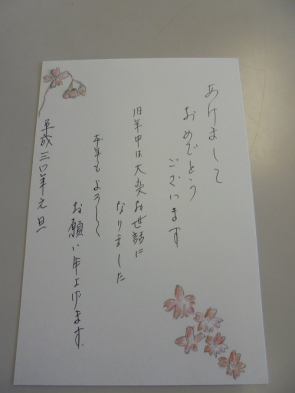 あけまして
おめでとう
ございます
旧年中は大変お世話に
なりました
本年もよろしく
お願い申し上げます。
平成三〇年元旦